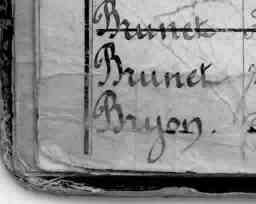 Brunet
Brunet
Bryon.